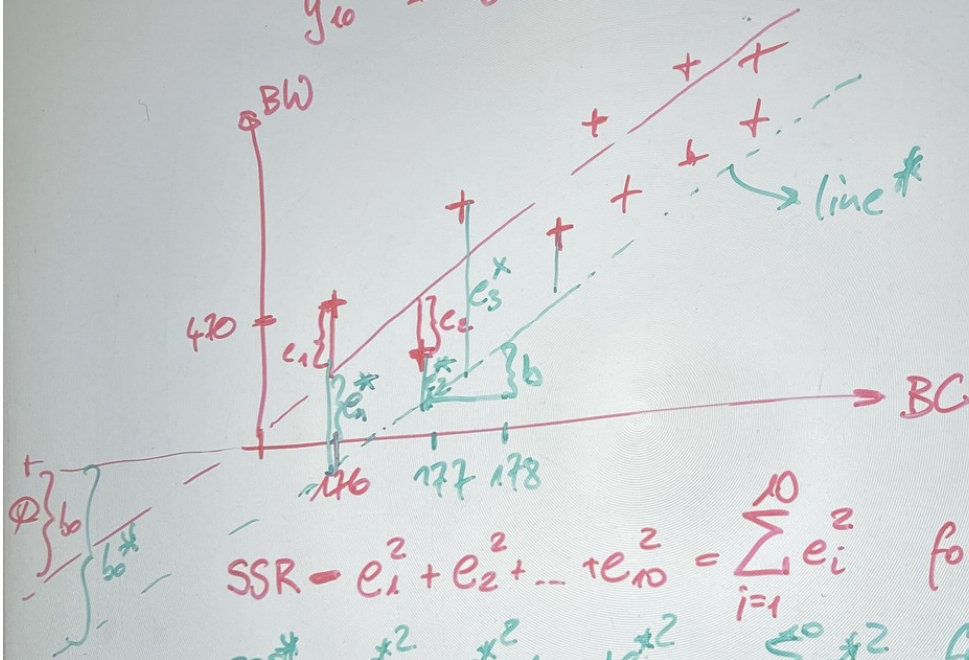 y₁₀
BW
line*
410
e₁
e₂
e₃*
e₂*
b
BC
176
177
178
b₀
b₀*
SSR = e₁² + e₂² + ... + e₁₀² = ∑ᵢ₌₁¹⁰ eᵢ² fo